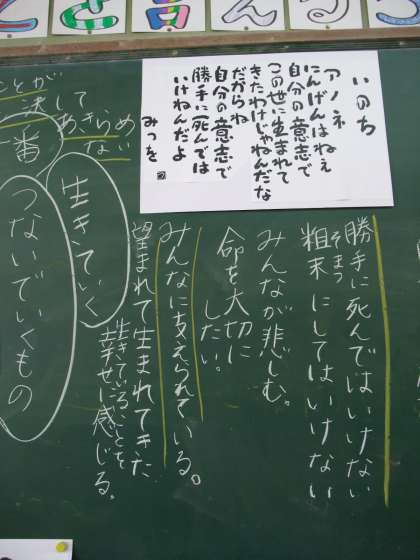 いのち
アノネ
にんげんはねぇ
自分の意志で
この世に生まれて
きたわけじゃねんだな
だからね
自分の意志で
勝手に死んでは
いけねんだよ
みつを
勝手に死んではいけない
粗末にしてはいけない
そまつ
みんなが悲しむ。
命を大切に
したい。
みんなに支えられている。
望まれて生まれてきた
生きていることを
幸せに感じる。
生きていく
つないでいくもの
ことが
一番
決して
あきらめ
ない